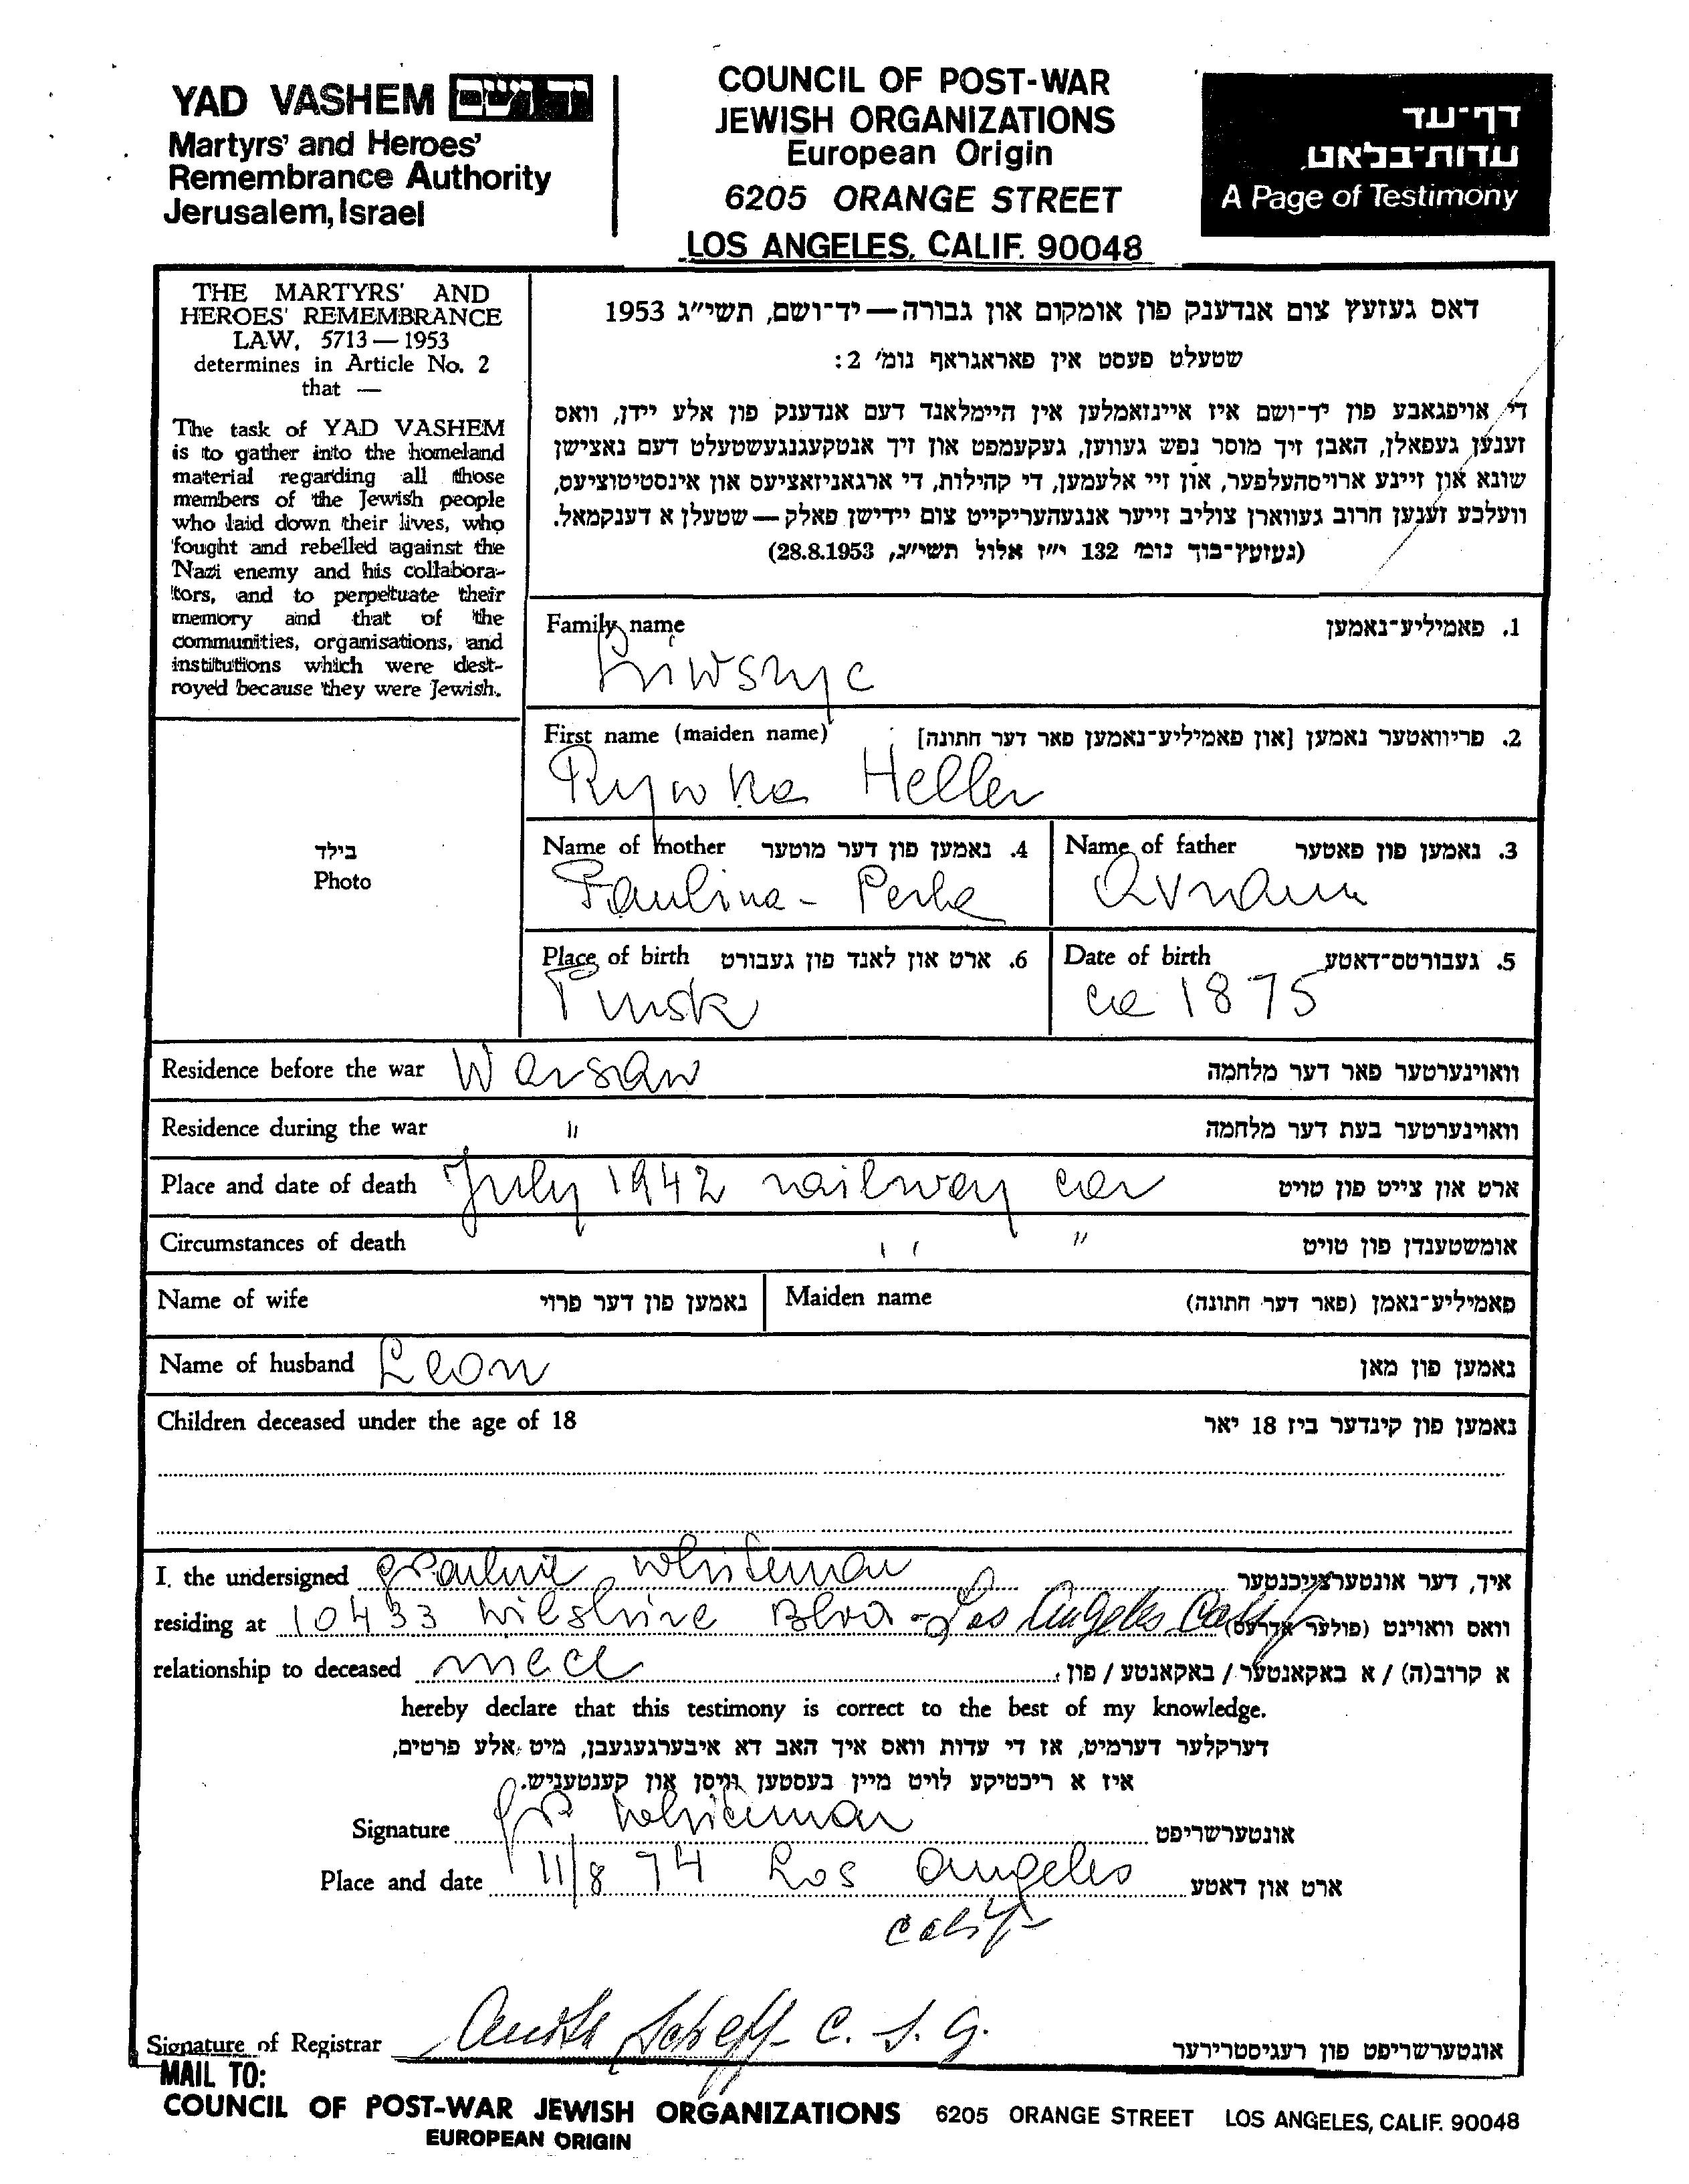 YAD VASHEM יד ושם
Martyrs' and Heroes'
Remembrance Authority
Jerusalem, Israel
COUNCIL OF POST-WAR
JEWISH ORGANIZATIONS
European Origin
6205 ORANGE STREET
LOS ANGELES, CALIF. 90048
דף־עד
עדות־בלאט
A Page of Testimony
THE MARTYRS' AND
HEROES' REMEMBRANCE
LAW, 5713—1953
determines in Article No. 2
that —
The task of YAD VASHEM
is to gather into the homeland
material regarding all those
members of the Jewish people
who laid down their lives, who
fought and rebelled against the
Nazi enemy and his collabora-
tors, and to perpetuate their
memory and that of the
communities, organisations, and
institutions which were dest-
royed because they were Jewish.
דאס געזעץ צום אנדענק פון אומקום און גבורה — יד־ושם, תשי"ג 1953
שטעלט פעסט אין פאראגראף נומ' 2:
די אויפגאבע פון יד־ושם איז איינזאמלען אין היימלאנד דעם אנדענק פון אלע יידן, וואס
זענען געפאלן, האבן זיך מוסר נפש געווען, געקעמפט און זיך אנטקעגנגעשטעלט דעם נאצישן
שונא און זיינע ארויסהעלפער, און זיי אלעמען, די קהילות, די ארגאניזאציעס און אינסטיטוציעס,
וועלכע זענען חרוב געווארן צוליב זייער אנגעהעריקייט צום יידישן פאלק — שטעלן א דענקמאל.
(געזעץ־בוך נומ' 132 י"ז אלול תשי"ג, 28.8.1953)
בילד
Photo
Family name 1. פאמיליע־נאמען
Kiwszyc
First name (maiden name) 2. פריוואטער נאמען [און פאמיליע־נאמען פאר דער חתונה]
Rywka Heller
Name of mother 4. נאמען פון דער מוטער
Paulina - Perla
Name of father 3. נאמען פון פאטער
Avram
Place of birth 6. ארט און לאנד פון געבורט
Pinsk
Date of birth 5. געבורטס־דאטע
ca 1875
Residence before the war Warsaw וואוינערטער פאר דער מלחמה
Residence during the war " וואוינערטער בעת דער מלחמה
Place and date of death July 1942 railway car ארט און צייט פון טויט
Circumstances of death " " אומשטענדן פון טויט
Name of wife נאמען פון דער פרוי Maiden name פאמיליע־נאמן (פאר דער חתונה)
Name of husband Leon נאמען פון מאן
Children deceased under the age of 18 נאמען פון קינדער ביז 18 יאר
I, the undersigned Whiteman איך, דער אונטערצייכנטער
residing at 10433 Wilshire Blvd - Los Angeles Calif וואס וואוינט (פולער אדרעס)
relationship to deceased niece א קרוב(ה) / א באקאנטער / באקאנטע / פון
hereby declare that this testimony is correct to the best of my knowledge.
דערקלער דערמיט, אז די עדות וואס איך האב דא איבערגעגעבן, מיט אלע פרטים,
איז א ריכטיקע לויט מיין בעסטען וויסן און קענטעניש.
Signature Whiteman אונטערשריפט
Place and date 11/8 74 Los Angeles ארט און דאטע
Calif
Signature of Registrar C. S. G. אונטערשריפט פון רעגיסטרירער
MAIL TO:
COUNCIL OF POST-WAR JEWISH ORGANIZATIONS 6205 ORANGE STREET LOS ANGELES, CALIF. 90048
EUROPEAN ORIGIN